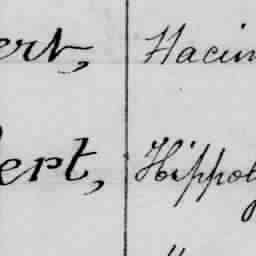 ert, Hacin
lert, Hippoly
"